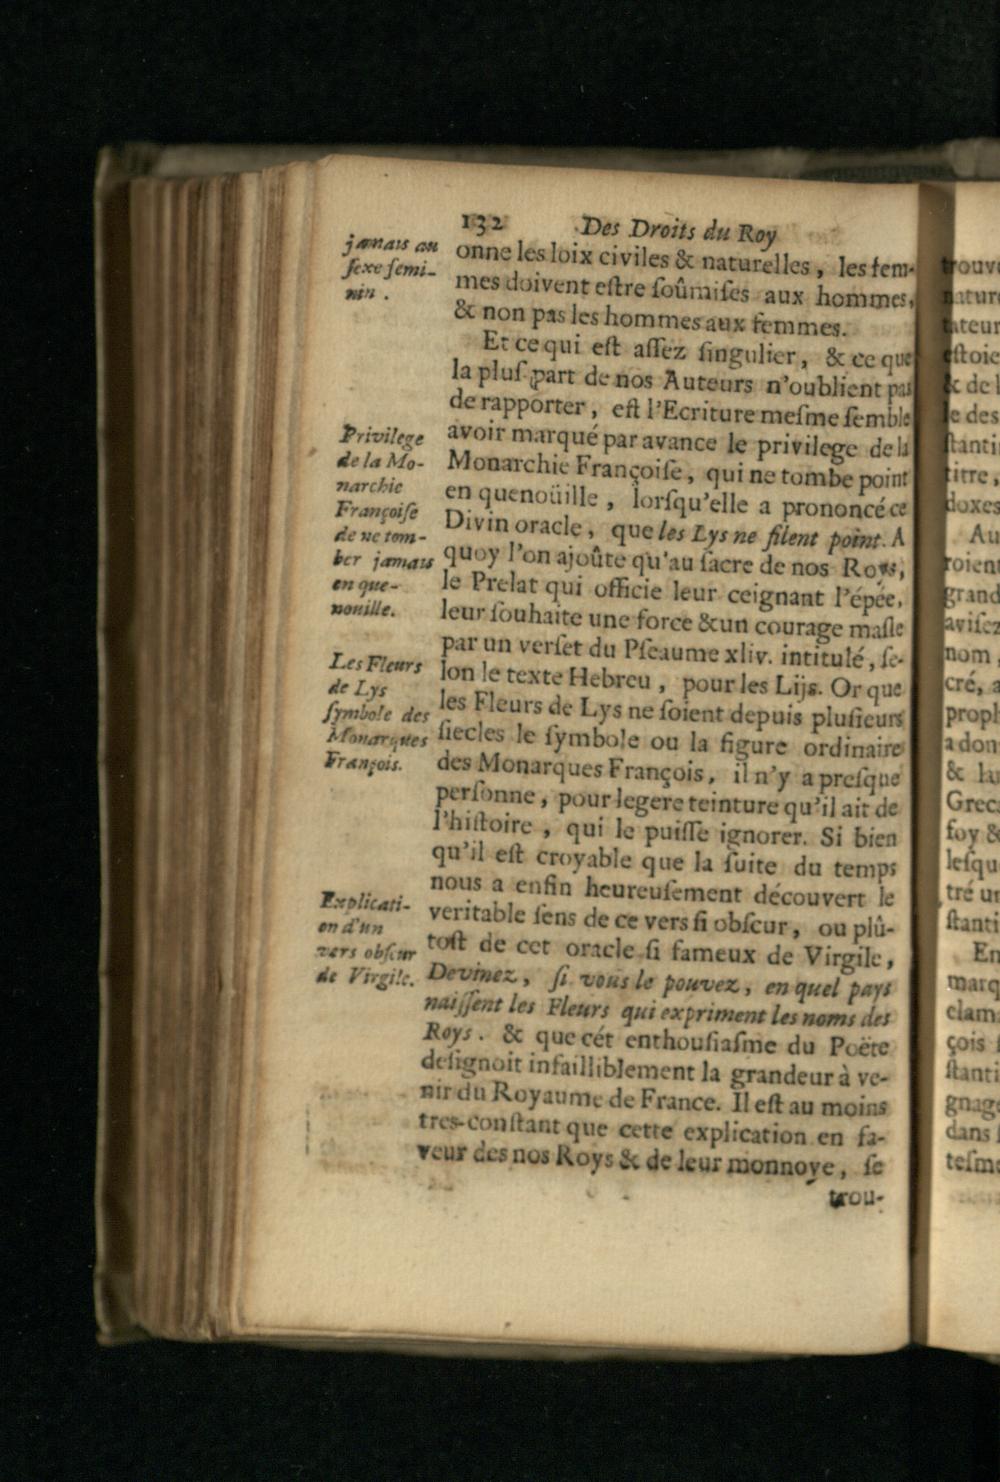 132 Des Droits du Roy
jamais au
sexe femi-
nin.
onne les loix civiles & naturelles, les fem-
mes doivent estre soûmises aux hommes,
& non pas les hommes aux femmes.
Et ce qui est assez singulier, & ce que
la plus part de nos Auteurs n'oublient pas
de rapporter, est l'Ecriture mesme semble
avoir marqué par avance le privilege de la
Monarchie Françoise, qui ne tombe point
en quenoüille, lorsqu'elle a prononcé ce
Divin oracle, que les Lys ne filent point. A
quoy l'on ajoûte qu'au sacre de nos Roys,
le Prelat qui officie leur ceignant l'épée,
leur souhaite une force & un courage masle
par un verset du Pseaume xliv. intitulé, se-
lon le texte Hebreu, pour les Lijs. Or que
les Fleurs de Lys ne soient depuis plusieurs
siecles le symbole ou la figure ordinaire
des Monarques François, il n'y a presque
personne, pour legere teinture qu'il ait de
l'histoire, qui le puisse ignorer. Si bien
qu'il est croyable que la suite du temps
nous a enfin heureusement découvert le
veritable sens de ce vers si obscur, ou plû-
tost de cet oracle si fameux de Virgile,
Devinez, si vous le pouvez, en quel pays
naissent les Fleurs qui expriment les noms des
Roys. & que cét enthousiasme du Poëte
designoit infailliblement la grandeur à ve-
nir du Royaume de France. Il est au moins
tres-constant que cette explication en fa-
veur des nos Roys & de leur monnoye, se
trou-
Privilege
de la Mo-
narchie
Françoise
de ne tom-
ber jamais
en que-
nouille.
Les Fleurs
de Lys
symbole des
Monarques
François.
Explicati-
on d'un
vers obscur
de Virgile.
trouve
nature
tateur
estoie
& de l
le des
stanti
titre,
doxes
Au
roient
grand
avisez
nom,
cré, a
proph
a don
& lu
Grecs
foy &
lesqu
tré un
stanti
En
marq
clam
çois
stanti
gnag
dans
tesmo